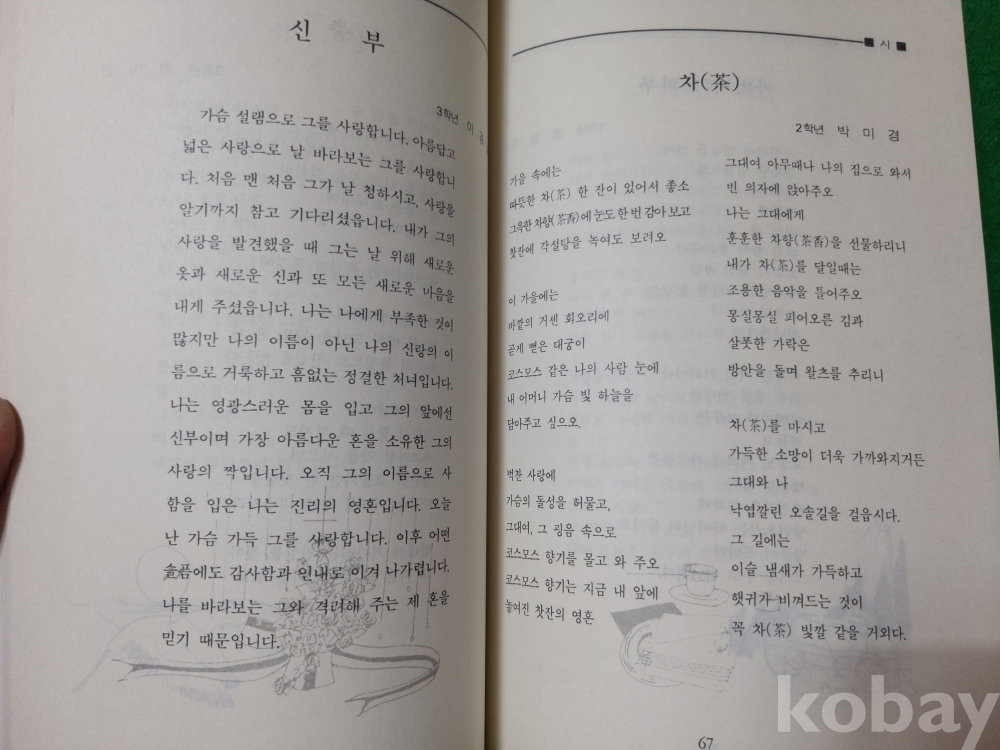 신 부
3학년 이 경
가슴 설램으로 그를 사랑합니다. 아름답고
넓은 사랑으로 날 바라보는 그를 사랑합니
다. 처음 맨 처음 그가 날 청하시고, 사랑을
알기까지 참고 기다리셨읍니다. 내가 그의
사랑을 발견했을 때 그는 날 위해 새로운
옷과 새로운 신과 또 모든 새로운 마음을
내게 주셨읍니다. 나는 나에게 부족한 것이
많지만 나의 이름이 아닌 나의 신랑의 이
름으로 거룩하고 흠없는 정결한 처녀입니다.
나는 영광스러운 몸을 입고 그의 앞에선
신부이며 가장 아름다운 혼을 소유한 그의
사랑의 짝입니다. 오직 그의 이름으로 사
함을 입은 나는 진리의 영혼입니다. 오늘
난 가슴 가득 그를 사랑합니다. 이후 어떤
슬픔에도 감사함과 인내로 이겨 나가렵니다.
나를 바라보는 그와 격려해 주는 제 혼을
믿기 때문입니다.
■ 시 ■
차(茶)
2학년 박 미 경
가을 속에는
따뜻한 차(茶) 한 잔이 있어서 좋소
그윽한 차향(茶香)에 눈도 한 번 감아 보고
찻잔에 각설탕을 녹여도 보려오
이 가을에는
바깥의 거센 회오리에
곧게 뻗은 대궁이
코스모스 같은 나의 사람 눈에
내 어머니 가슴 빛 하늘을
담아주고 싶으오.
벅찬 사랑에
가슴의 돌성을 허물고,
그대여, 그 굉음 속으로
코스모스 향기를 몰고 와 주오
코스모스 향기는 지금 내 앞에
놓여진 찻잔의 영혼
그대여 아무때나 나의 집으로 와서
빈 의자에 앉아주오
나는 그대에게
훈훈한 차향(茶香)을 선물하리니
내가 차(茶)를 달일때는
조용한 음악을 틀어주오
몽실몽실 피어오른 김과
살풋한 가락은
방안을 돌며 왈츠를 추리니
차(茶)를 마시고
가득한 소망이 더욱 가까와지거든
그대와 나
낙엽깔린 오솔길을 걸읍시다.
그 길에는
이슬 냄새가 가득하고
햇귀가 비껴드는 것이
꼭 차(茶) 빛깔 같을 거외다.
67
kobay